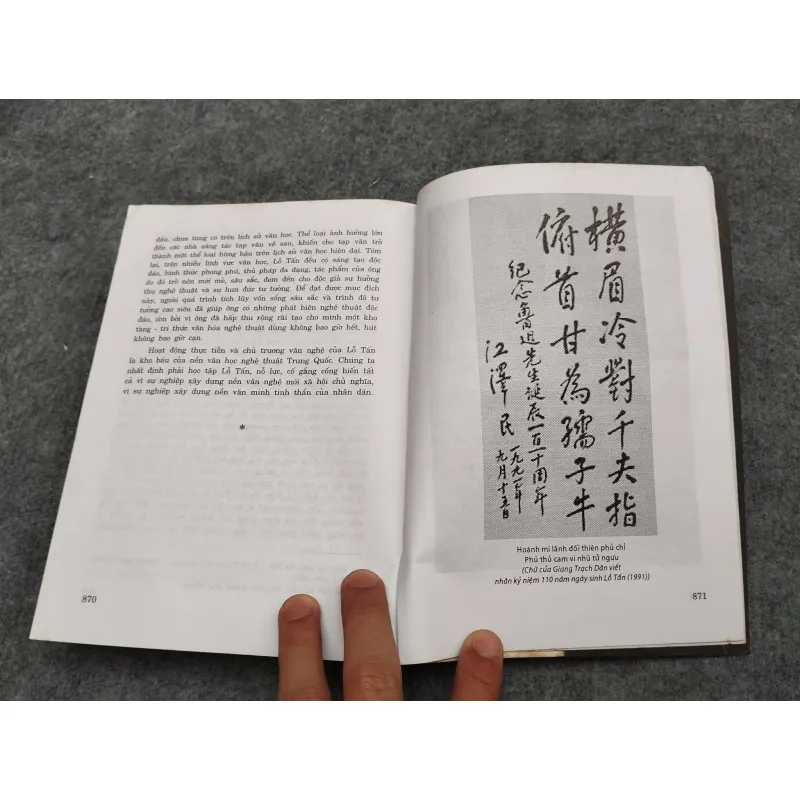 đáo, chưa từng có trên lịch sử văn học. Thể loại ảnh hưởng lớn
đến các nhà sáng tác tạp văn về sau, khiến cho tạp văn trở
thành một thể loại hùng hậu trên lịch sử văn học hiện đại. Tóm
lại, trên nhiều lĩnh vực văn học, Lỗ Tấn đều có sáng tạo độc
đáo, hình thức phong phú, thủ pháp đa dạng, tác phẩm của ông
do đó trở nên mới mẻ, sâu sắc, đem đến cho độc giả sự hưởng
thụ nghệ thuật và sự hun đúc tư tưởng. Để đạt được mục đích
này, ngoài quá trình tích lũy vốn sống sâu sắc và trình độ tư
tưởng cao siêu đã giúp ông có những phát hiện nghệ thuật độc
đáo, còn bởi vì ông đã hấp thu rộng rãi tạo cho mình một kho
tàng - tri thức văn hóa nghệ thuật dùng không bao giờ hết, hút
không bao giờ cạn.
Hoạt động thực tiễn và chủ trương văn nghệ của Lỗ Tấn
là kho báu của nền văn học nghệ thuật Trung Quốc. Chúng ta
nhất định phải học tập Lỗ Tấn, nỗ lực, cố gắng cống hiến tất
cả vì sự nghiệp xây dựng nền văn nghệ mới xã hội chủ nghĩa,
vì sự nghiệp xây dựng nền văn minh tinh thần của nhân dân.
*
870
橫眉冷對千夫指
俯首甘為孺子牛
紀念魯迅先生誕辰一百一十周年
江澤民
一九九一年
九月十五日
Hoành mi lãnh đối thiên phủ chỉ
Phủ thủ cam vi nhũ tử ngưu
(Chữ của Giang Trạch Dân viết
nhân kỷ niệm 110 năm ngày sinh Lỗ Tấn (1991))
871